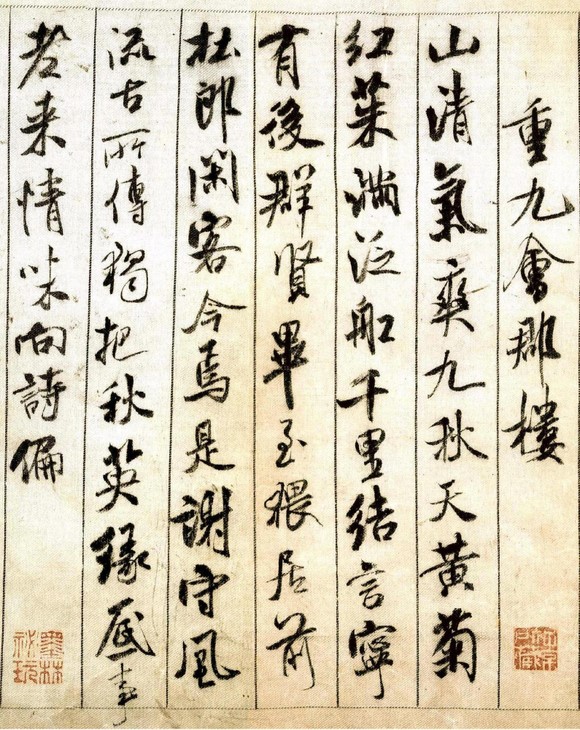 重九會郡樓
山清氣爽九秋天黃菊
紅茱滿泛舡千里結言寧
有後群賢畢至猥居前
杜郎閑客今焉是謝守風
流古所傳獨把秋英緣底事
老来情味向詩偏
墨林祕玩